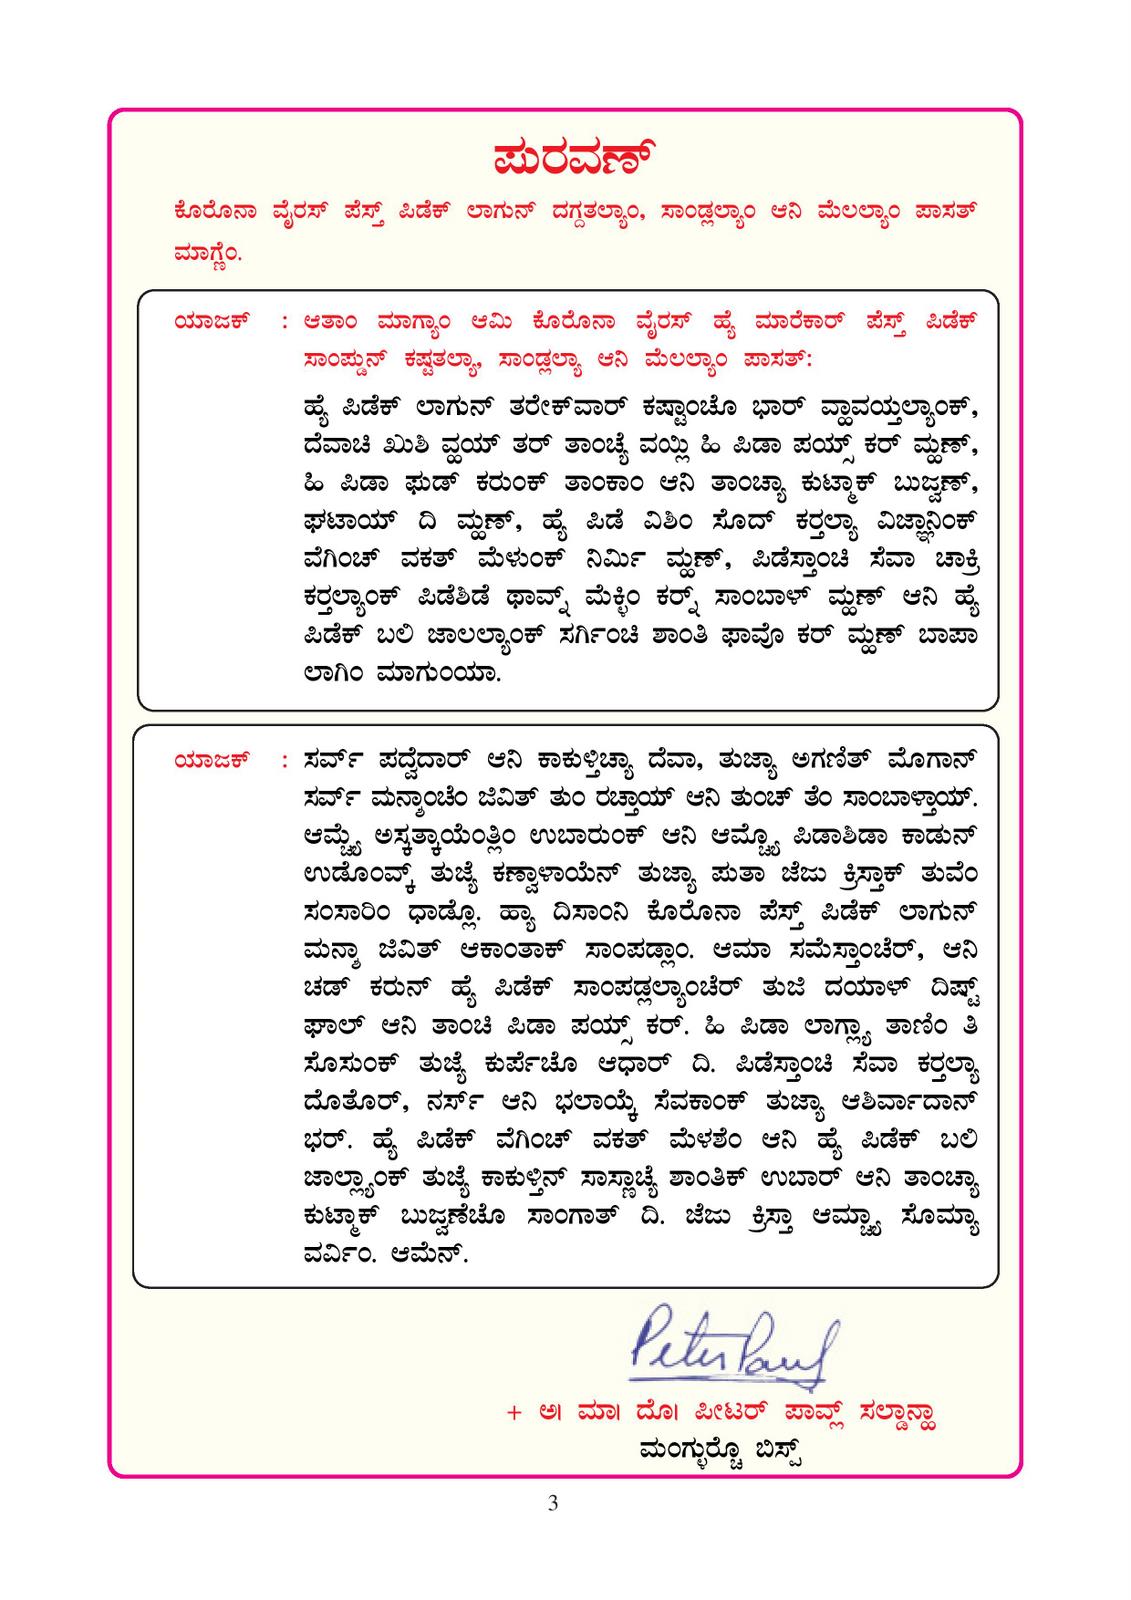 ಪುರವಣ್
ಕೊರೊನಾ ವೈರಸ್ ಪೆಸ್ತ್ ಪಿಡೆಕ್ ಲಾಗುನ್ ದಗ್ದತಲ್ಯಾಂ, ಸಾಂಡ್ಲಲ್ಯಾಂ ಆನಿ ಮೆಲಲ್ಯಾಂ ಪಾಸತ್
ಮಾಗ್ಣೆಂ.
ಯಾಜಕ್ : ಆತಾಂ ಮಾಗ್ಯಾಂ ಆಮಿ ಕೊರೊನಾ ವೈರಸ್ ಹ್ಯೆ ಮಾರೆಕಾರ್ ಪೆಸ್ತ್ ಪಿಡೆಕ್
ಸಾಂಪ್ಡುನ್ ಕಷ್ಟತಲ್ಯಾ, ಸಾಂಡ್ಲಲ್ಯಾ ಆನಿ ಮೆಲಲ್ಯಾಂ ಪಾಸತ್:
ಹ್ಯೆ ಪಿಡೆಕ್ ಲಾಗುನ್ ತರೇಕ್‌ವಾರ್ ಕಷ್ಟಾಂಚೊ ಭಾರ್ ವ್ಹಾವಯ್ತಲ್ಯಾಂಕ್,
ದೆವಾಚಿ ಖುಶಿ ವ್ಹಯ್ ತರ್ ತಾಂಚ್ಯೆ ವಯ್ಲಿ ಹಿ ಪಿಡಾ ಪಯ್ಸ್ ಕರ್ ಮ್ಹಣ್,
ಹಿ ಪಿಡಾ ಫುಡ್ ಕರುಂಕ್ ತಾಂಕಾಂ ಆನಿ ತಾಂಚ್ಯಾ ಕುಟ್ಮಾಕ್ ಬುಜ್ವಣ್,
ಘಟಾಯ್ ದಿ ಮ್ಹಣ್, ಹ್ಯೆ ಪಿಡೆ ವಿಶಿಂ ಸೊದ್ ಕರ್‍ತಲ್ಯಾ ವಿಜ್ಞಾನಿಂಕ್
ವೆಗಿಂಚ್ ವಕತ್ ಮೆಳುಂಕ್ ನಿರ್ಮಿ ಮ್ಹಣ್, ಪಿಡೆಸ್ತಾಂಚಿ ಸೆವಾ ಚಾಕ್ರಿ
ಕರ್‍ತಲ್ಯಾಂಕ್ ಪಿಡೆಶಿಡೆ ಥಾವ್ನ್ ಮೆಕ್ಳಿಂ ಕರ್‍ನ್ ಸಾಂಬಾಳ್ ಮ್ಹಣ್ ಆನಿ ಹ್ಯೆ
ಪಿಡೆಕ್ ಬಲಿ ಜಾಲಲ್ಯಾಂಕ್ ಸರ್ಗಿಂಚಿ ಶಾಂತಿ ಫಾವೊ ಕರ್ ಮ್ಹಣ್ ಬಾಪಾ
ಲಾಗಿಂ ಮಾಗುಂಯಾ.
ಯಾಜಕ್ : ಸರ್ವ್ ಪದ್ವೆದಾರ್ ಆನಿ ಕಾಕುಳ್ತಿಚ್ಯಾ ದೆವಾ, ತುಜ್ಯಾ ಅಗಣಿತ್ ಮೊಗಾನ್
ಸರ್ವ್ ಮನ್ಶಾಂಚೆಂ ಜಿವಿತ್ ತುಂ ರಚ್ತಾಯ್ ಆನಿ ತುಂಚ್ ತೆಂ ಸಾಂಬಾಳ್ತಾಯ್.
ಆಮ್ಚ್ಯೆ ಅಸ್ಕತ್ಕಾಯೆಂತ್ಲಿಂ ಉಬಾರುಂಕ್ ಆನಿ ಆಮ್ಚ್ಯೊ ಪಿಡಾಶಿಡಾ ಕಾಡುನ್
ಉಡೊಂವ್ಕ್ ತುಜ್ಯೆ ಕಣ್ವಾಳಾಯೆನ್ ತುಜ್ಯಾ ಪುತಾ ಜೆಜು ಕ್ರಿಸ್ತಾಕ್ ತುವೆಂ
ಸಂಸಾರಿಂ ಧಾಡ್ಲೊ. ಹ್ಯಾ ದಿಸಾಂನಿ ಕೊರೊನಾ ಪೆಸ್ತ್ ಪಿಡೆಕ್ ಲಾಗುನ್
ಮನ್ಶಾ ಜಿವಿತ್ ಆಕಾಂತಾಕ್ ಸಾಂಪಡ್ಲಾಂ. ಆಮಾ ಸಮೆಸ್ತಾಂಚೆರ್, ಆನಿ
ಚಡ್ ಕರುನ್ ಹ್ಯೆ ಪಿಡೆಕ್ ಸಾಂಪಡ್ಲಲ್ಯಾಂಚೆರ್ ತುಜಿ ದಯಾಳ್ ದಿಷ್ಟ್
ಘಾಲ್ ಆನಿ ತಾಂಚಿ ಪಿಡಾ ಪಯ್ಸ್ ಕರ್. ಹಿ ಪಿಡಾ ಲಾಗ್ಲ್ಯಾ ತಾಣಿಂ ತಿ
ಸೊಸುಂಕ್ ತುಜ್ಯೆ ಕುರ್ಪೆಚೊ ಆಧಾರ್ ದಿ. ಪಿಡೆಸ್ತಾಂಚಿ ಸೆವಾ ಕರ್‍ತಲ್ಯಾ
ದೊತೊರ್, ನರ್ಸ್ ಆನಿ ಭಲಾಯ್ಕೆ ಸೆವಕಾಂಕ್ ತುಜ್ಯಾ ಆಶಿರ್ವಾದಾನ್
ಭರ್. ಹ್ಯೆ ಪಿಡೆಕ್ ವೆಗಿಂಚ್ ವಕತ್ ಮೆಳಶೆಂ ಆನಿ ಹ್ಯೆ ಪಿಡೆಕ್ ಬಲಿ
ಜಾಲ್ಲ್ಯಾಂಕ್ ತುಜ್ಯೆ ಕಾಕುಳ್ತಿನ್ ಸಾಸ್ಣಾಚ್ಯೆ ಶಾಂತಿಕ್ ಉಬಾರ್ ಆನಿ ತಾಂಚ್ಯಾ
ಕುಟ್ಮಾಕ್ ಬುಜ್ವಣೆಚೊ ಸಾಂಗಾತ್ ದಿ. ಜೆಜು ಕ್ರಿಸ್ತಾ ಆಮ್ಚ್ಯಾ ಸೊಮ್ಯಾ
ವರ್ವಿಂ. ಆಮೆನ್.
Peter Paul
+ ಅ| ಮಾ| ದೊ| ಪೀಟರ್ ಪಾವ್ಲ್ ಸಲ್ಡಾನ್ಹಾ
ಮಂಗ್ಳುರ್‍ಚೊ ಬಿಸ್ಪ್
3